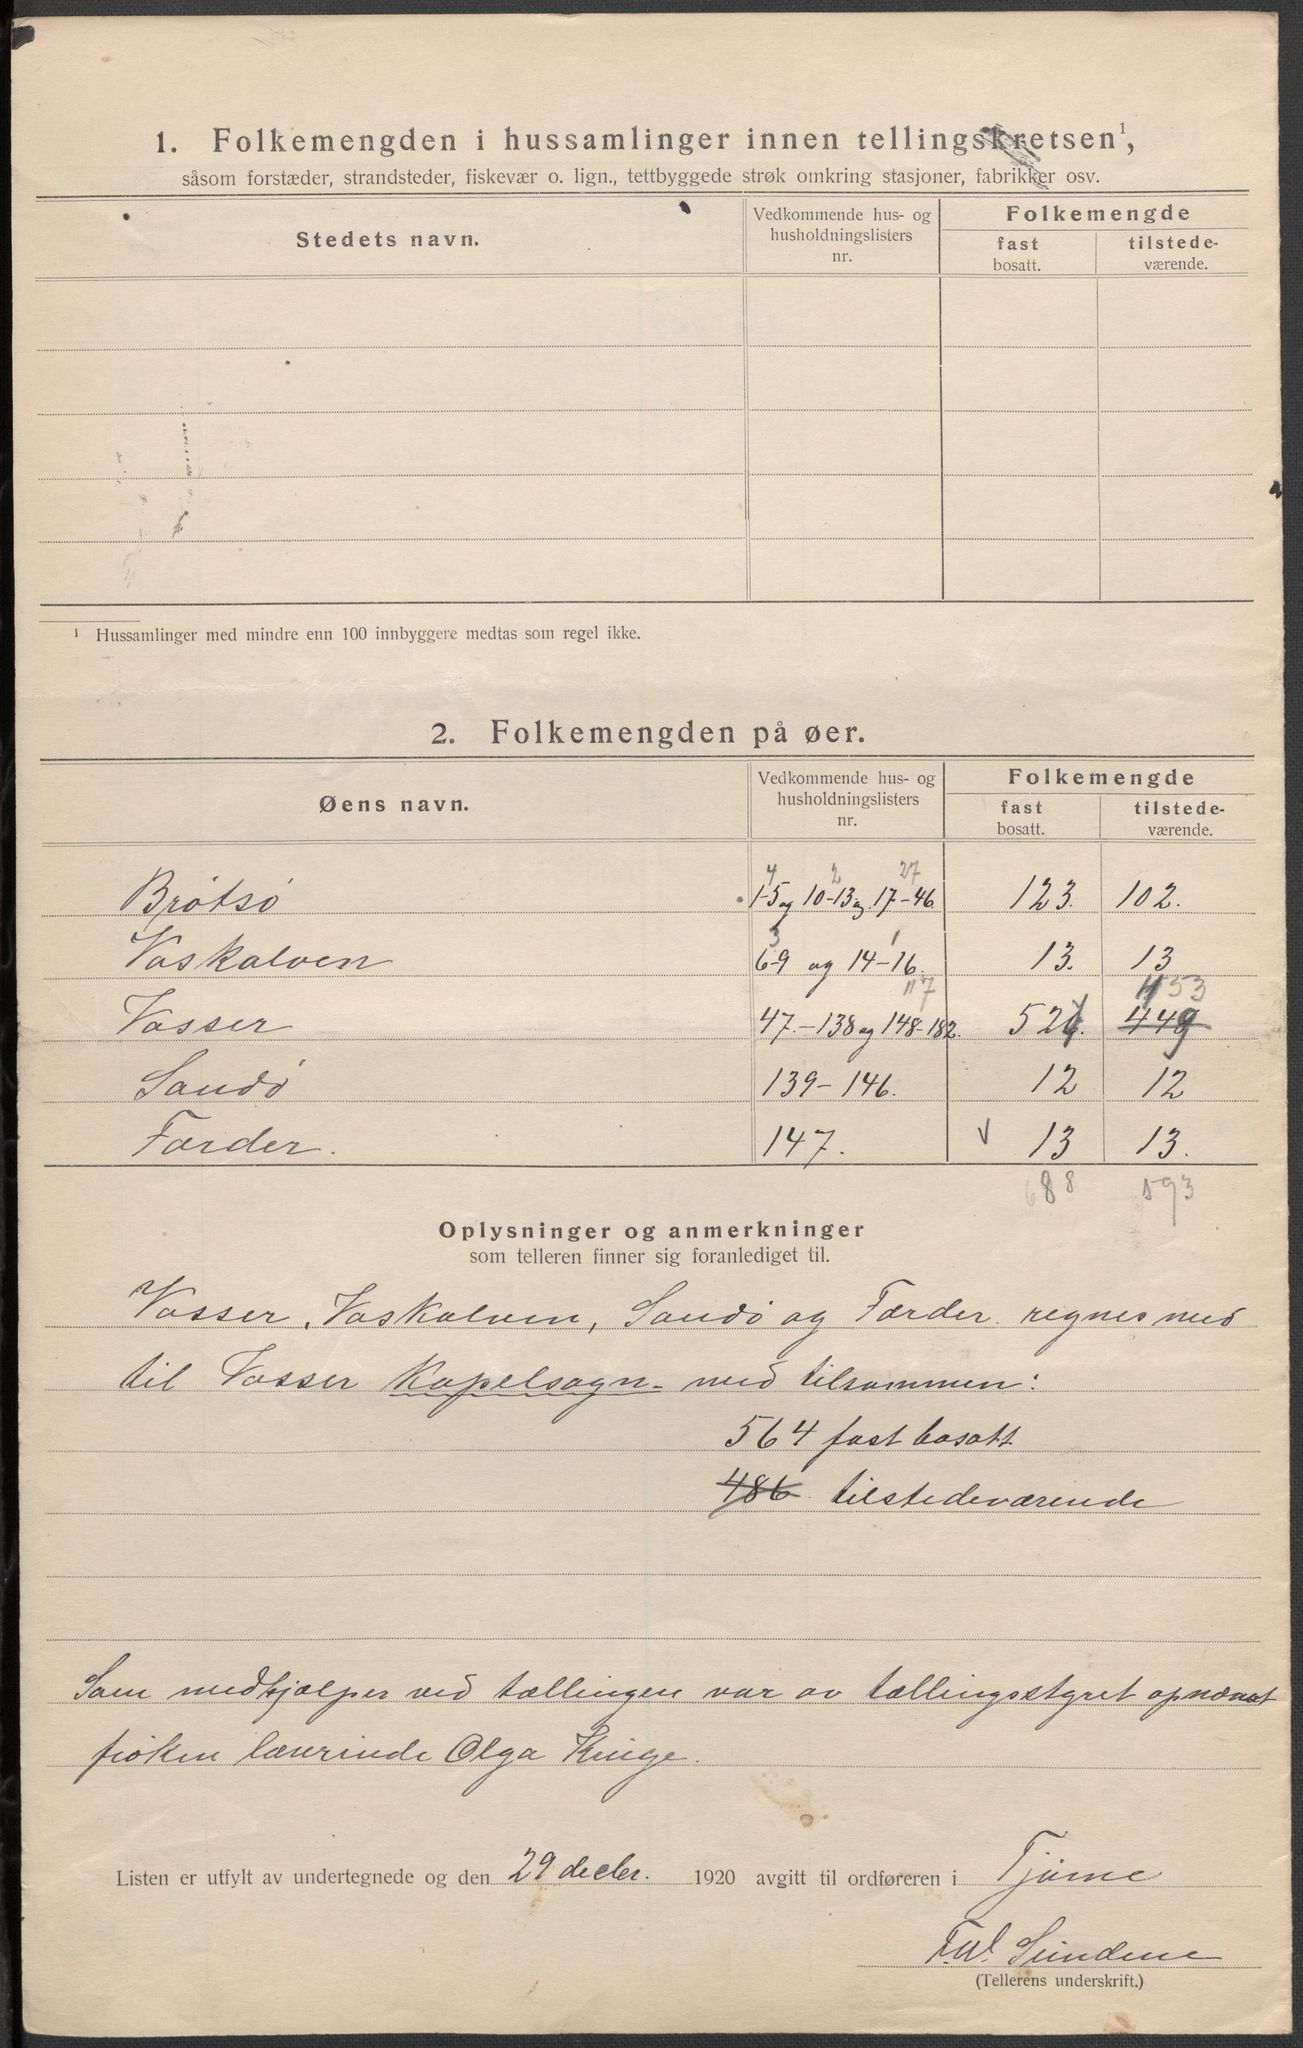 1. Folkemengden i hussamlinger innen tellingskretsen¹,
såsom forstæder, strandsteder, fiskevær o. lign., tettbyggede strøk omkring stasjoner, fabrikker osv.
Stedets navn.
Vedkommende hus- og husholdningslisters nr.
Folkemengde
fast bosatt.
tilstede-værende.
¹ Hussamlinger med mindre enn 100 innbyggere medtas som regel ikke.
2. Folkemengden på øer.
Øens navn.
Vedkommende hus- og husholdningslisters nr.
Folkemengde
fast bosatt.
tilstede-værende.
4 2 27
Brøtsø 1-5 og 10-13 og 17-46 123. 102.
3 1
Vaskalven 6-9 og 14-16. 13. 13
117 453
Vasser 47.-138 og 148-182. 527. 449
Sandø 139-146. 12 12
Færder. 147. √ 13 13.
688 593
Oplysninger og anmerkninger
som telleren finner sig foranlediget til.
Vasser, Vaskalven, Sandø og Færder regnes med
til Vasser Kapelsogn med tilsammen:
564 fast bosatt
486 tilstedeværende
Som medhjælper ved tællingen var av tællingsstyret opnævnt
frøken lærerinde Olga Kruge.
Listen er utfylt av undertegnede og den 29 decbr. 1920 avgitt til ordføreren i Tjøme
Sundene
(Tellerens underskrift.)